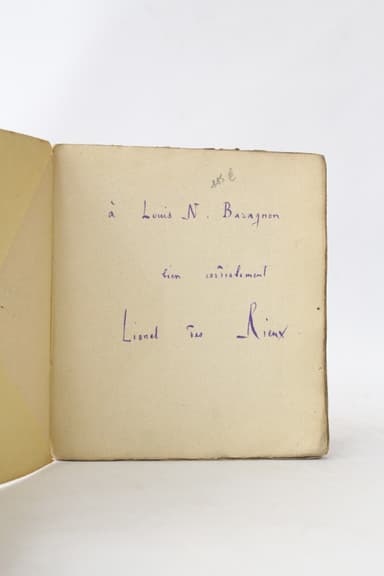 à Louis N. Baragnon
bien cordialement
Lionel des Rieux